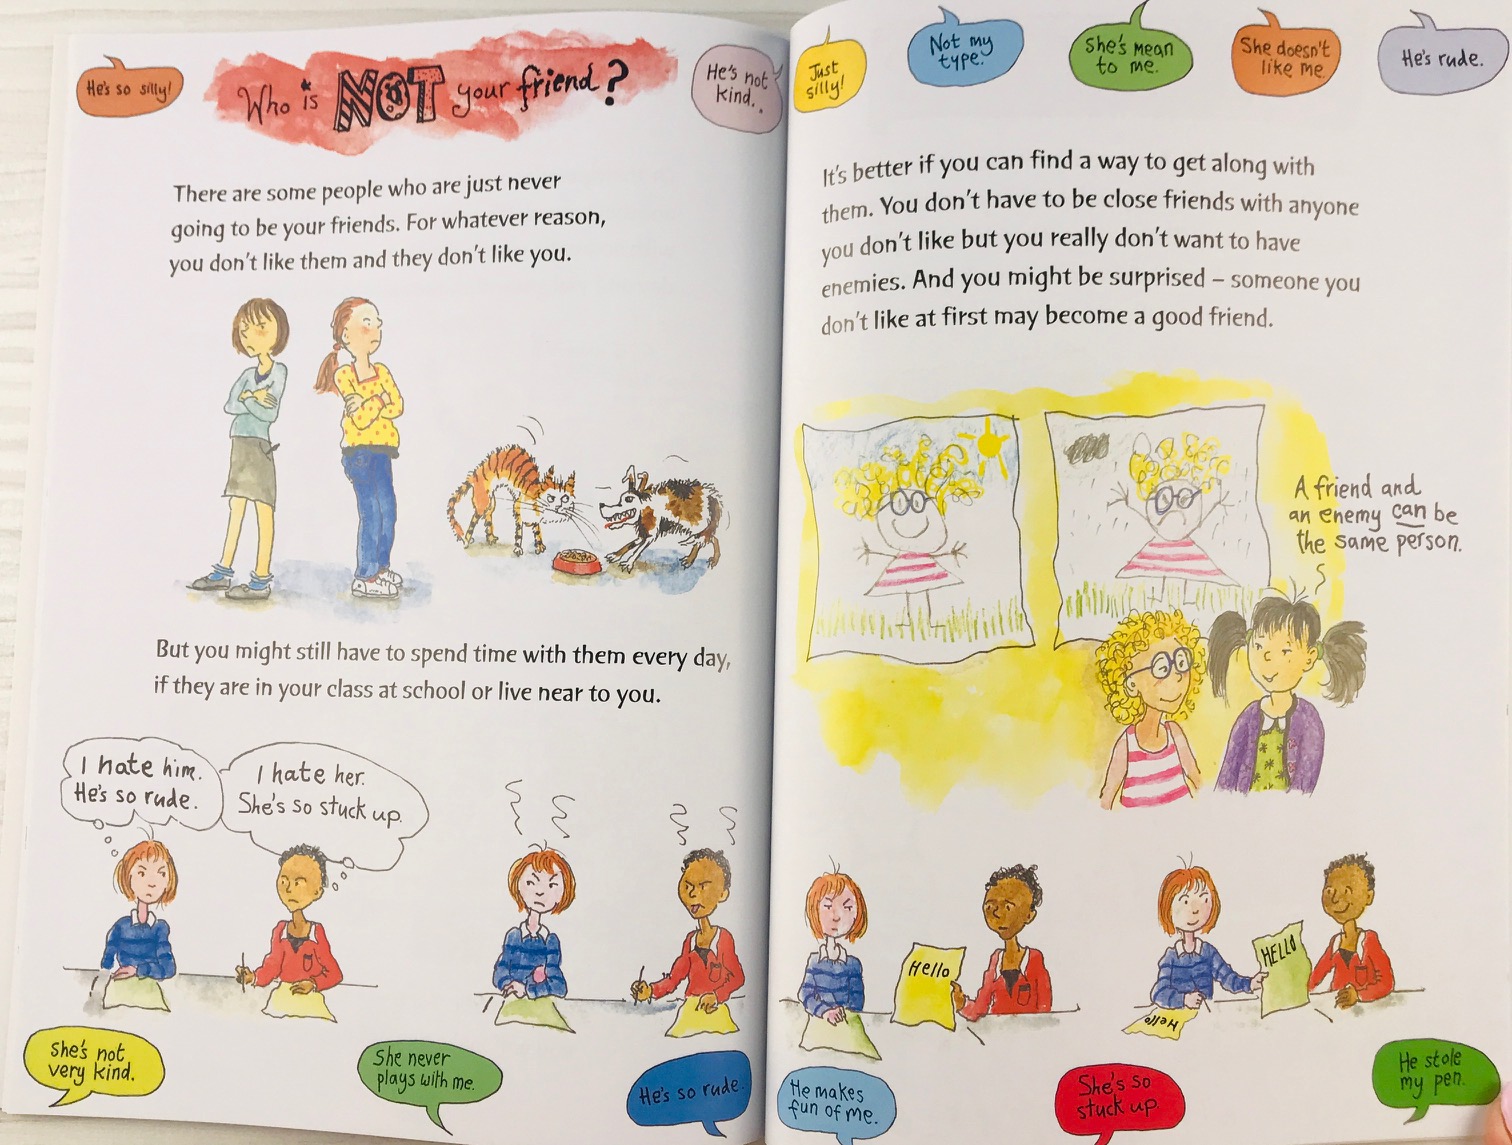 He's so silly!
Who is NOT your friend?
He's not
kind..
There are some people who are just never
going to be your friends. For whatever reason,
you don't like them and they don't like you.
But you might still have to spend time with them every day,
if they are in your class at school or live near to you.
I hate him.
He's so rude.
I hate her.
She's so stuck up.
She's not
very kind.
She never
plays with me.
He's so rude.
Just
silly!
Not my
type.
She's mean
to me.
She doesn't
like me.
He's rude.
It's better if you can find a way to get along with
them. You don't have to be close friends with anyone
you don't like but you really don't want to have
enemies. And you might be surprised – someone you
don't like at first may become a good friend.
A friend and
an enemy can be
the same person.
Hello
HELLO
Hello
He makes
fun of me.
She's so
stuck up
He stole
my pen.